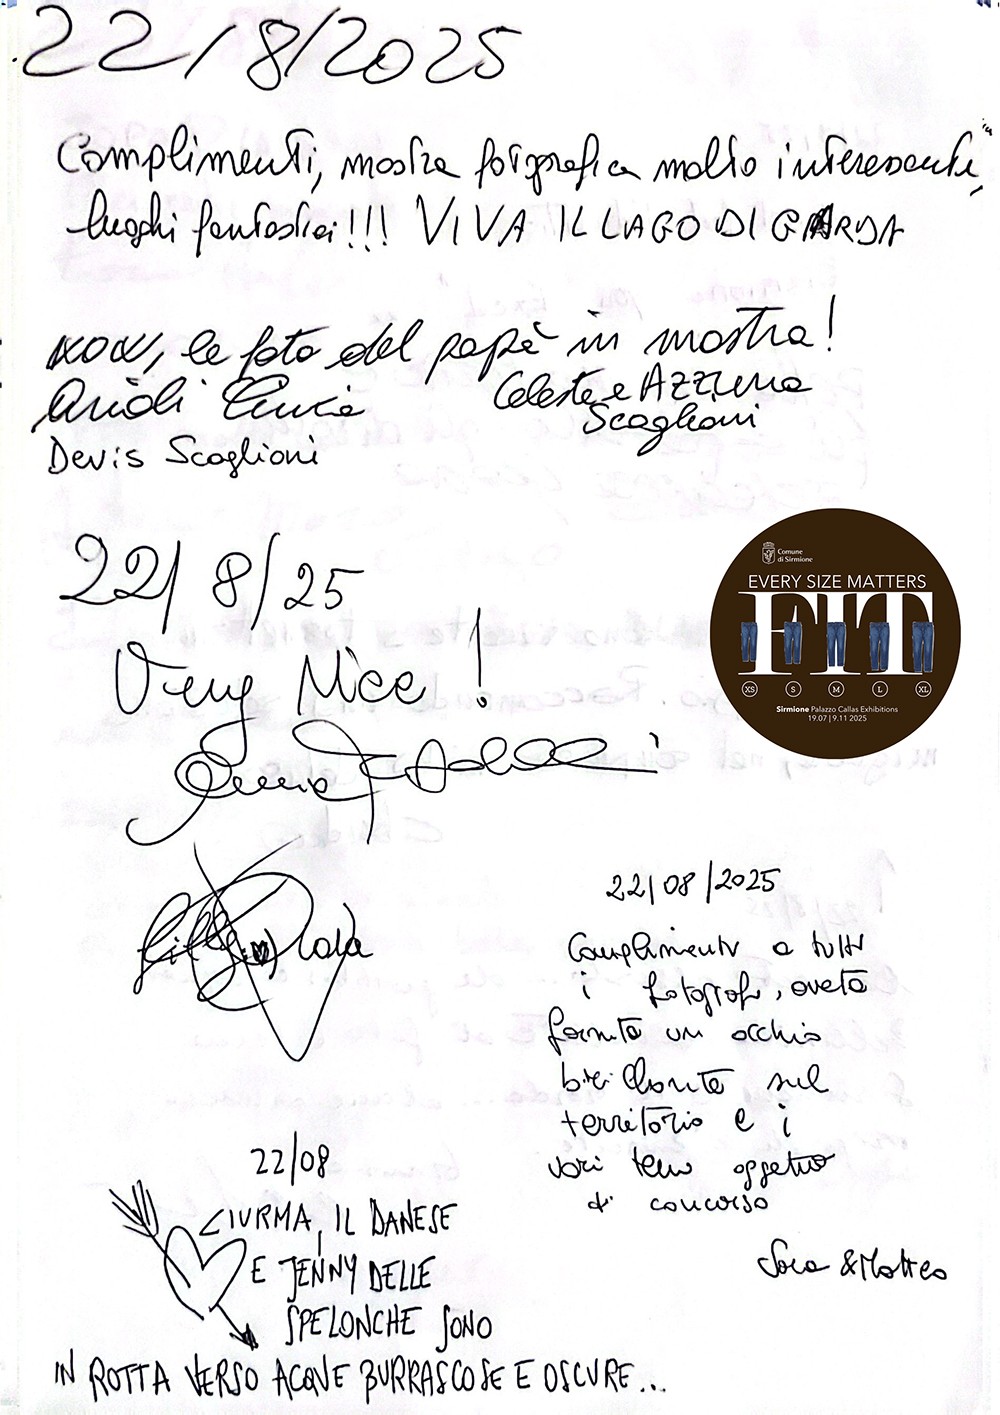 22/8/2025
Complimenti, mostra fotografica molto interessante,
luoghi fantastici!!! VIVA IL LAGO DI GARDA
wow, le foto del papà in mostra!
Celeste e Azzurra
Scaglioni
Devis Scaglioni
22/8/25
Very Nice!
Comune
di Sirmione
EVERY SIZE MATTERS
FIT
XS S M L XL
Sirmione Palazzo Callas Exhibitions
19.07 | 9.11 2025
22/08/2025
Complimenti a tutti
i fotografi, avete
fornito un occhio
sul
territorio e i
vari temi oggetto
di concorso
Sara & Matteo
22/08
CIURMA, IL DANESE
E JENNY DELLE
SPELONCHE SONO
IN ROTTA VERSO ACQUE BURRASCOSE E OSCURE...